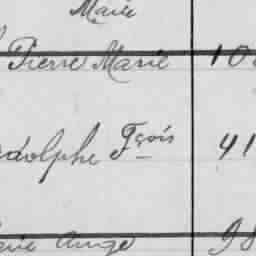 Marie
Pierre Marie 10
Adolphe Fçois 41
Ange 98